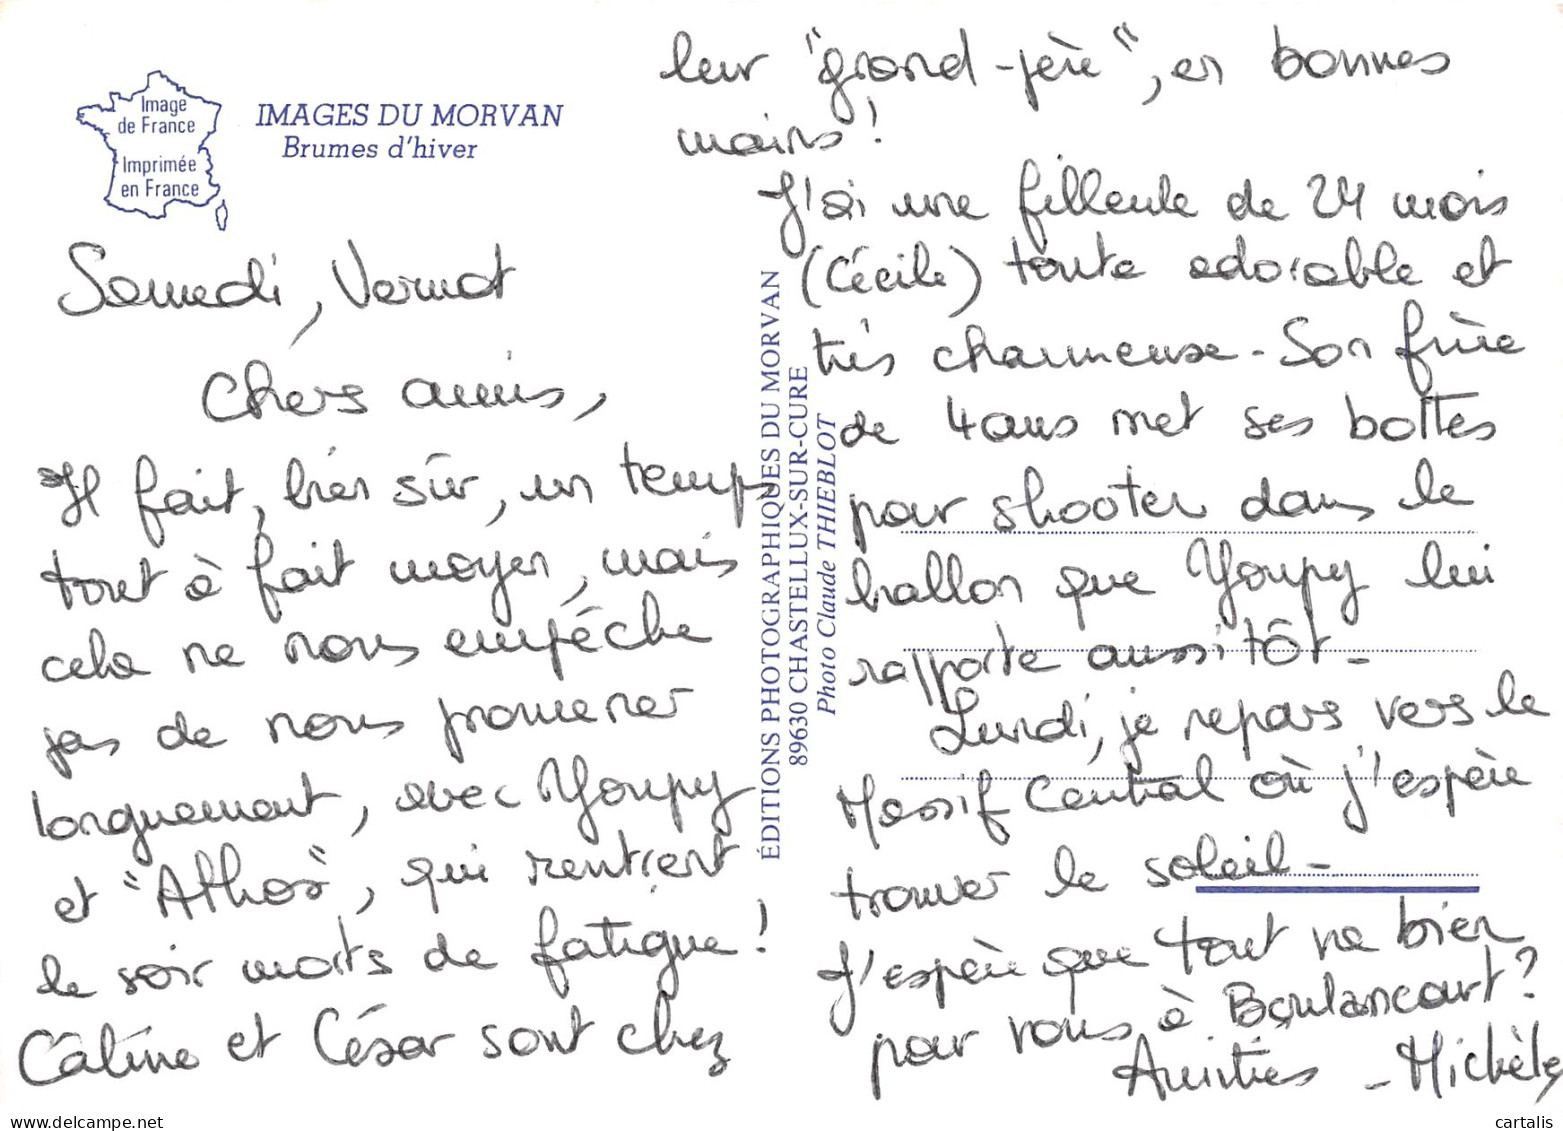 Image
de France
Imprimée
en France
IMAGES DU MORVAN
Brumes d'hiver
Samedi, Vermot
Chers amis,
Il fait, bien sûr, un temps
tout à fait moyen, mais
cela ne nous empêche
pas de nous promener
longuement, avec Youpy
et "Athos", qui rentrent
le soir morts de fatigue !
Câline et César sont chez
ÉDITIONS PHOTOGRAPHIQUES DU MORVAN
89630 CHASTELLUX-SUR-CURE
Photo Claude THIEBLOT
leur "grand-père", en bonnes
mains !
J'ai une filleule de 24 mois
(Cécile) toute adorable et
très charmeuse - Son frère
de 4 ans met ses bottes
pour shooter dans le
ballon que Youpy lui
rapporte aussitôt -
Lundi, je repars vers le
Massif Central où j'espère
trouver le soleil -
J'espère que tout va bien
pour vous à Boulancourt ?
Amitiés - Michèle
cartalis